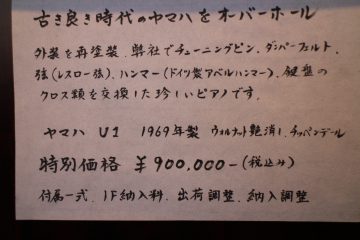 古き良き時代のヤマハをオーバーホール
外装を再塗装、弊社でチューニングピン、ダンパーフェルト、
弦(レスロー弦)、ハンマー(ドイツ製アベルハンマー)、鍵盤の
クロス類を交換した珍しいピアノです。
ヤマハ U1 1969年製 ウォルナット艶消し、チッペンデール
特別価格 ¥900,000-(税込み)
付属一式、1F納入料、出荷調整、納入調整